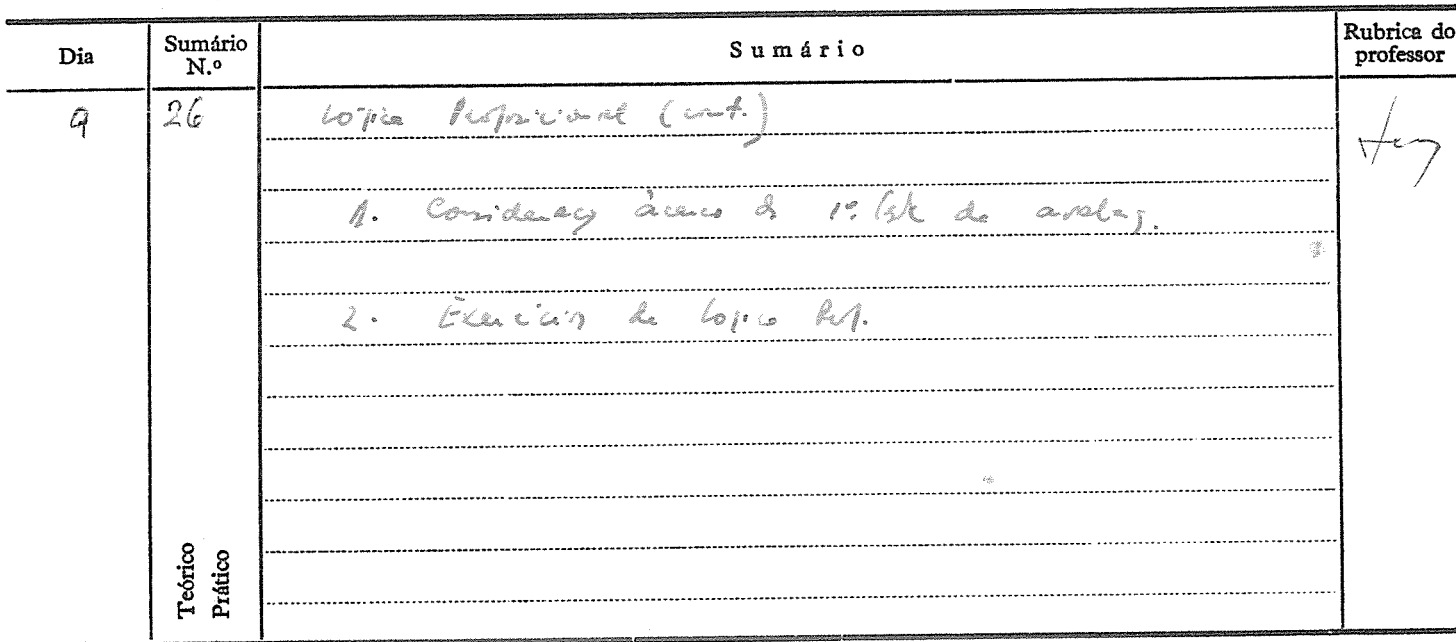 Dia
Sumário N.º
Sumário
Rubrica do professor
9
26
Lógica Proposicional (cont.)
1. Considerações àcerca do 1º teste de avaliaç.
2. Exercícios de Lógica Prop.
Teórico
Prático